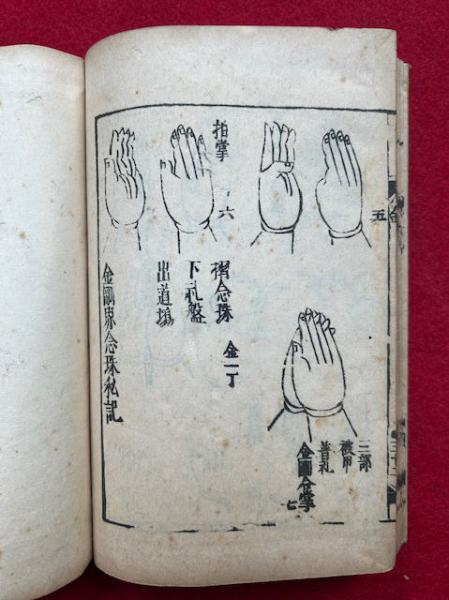 五
拍掌
六
三部
被甲
普礼
金剛合掌
七
金一丁
念珠
下礼盤
出道場
金剛界念珠私記